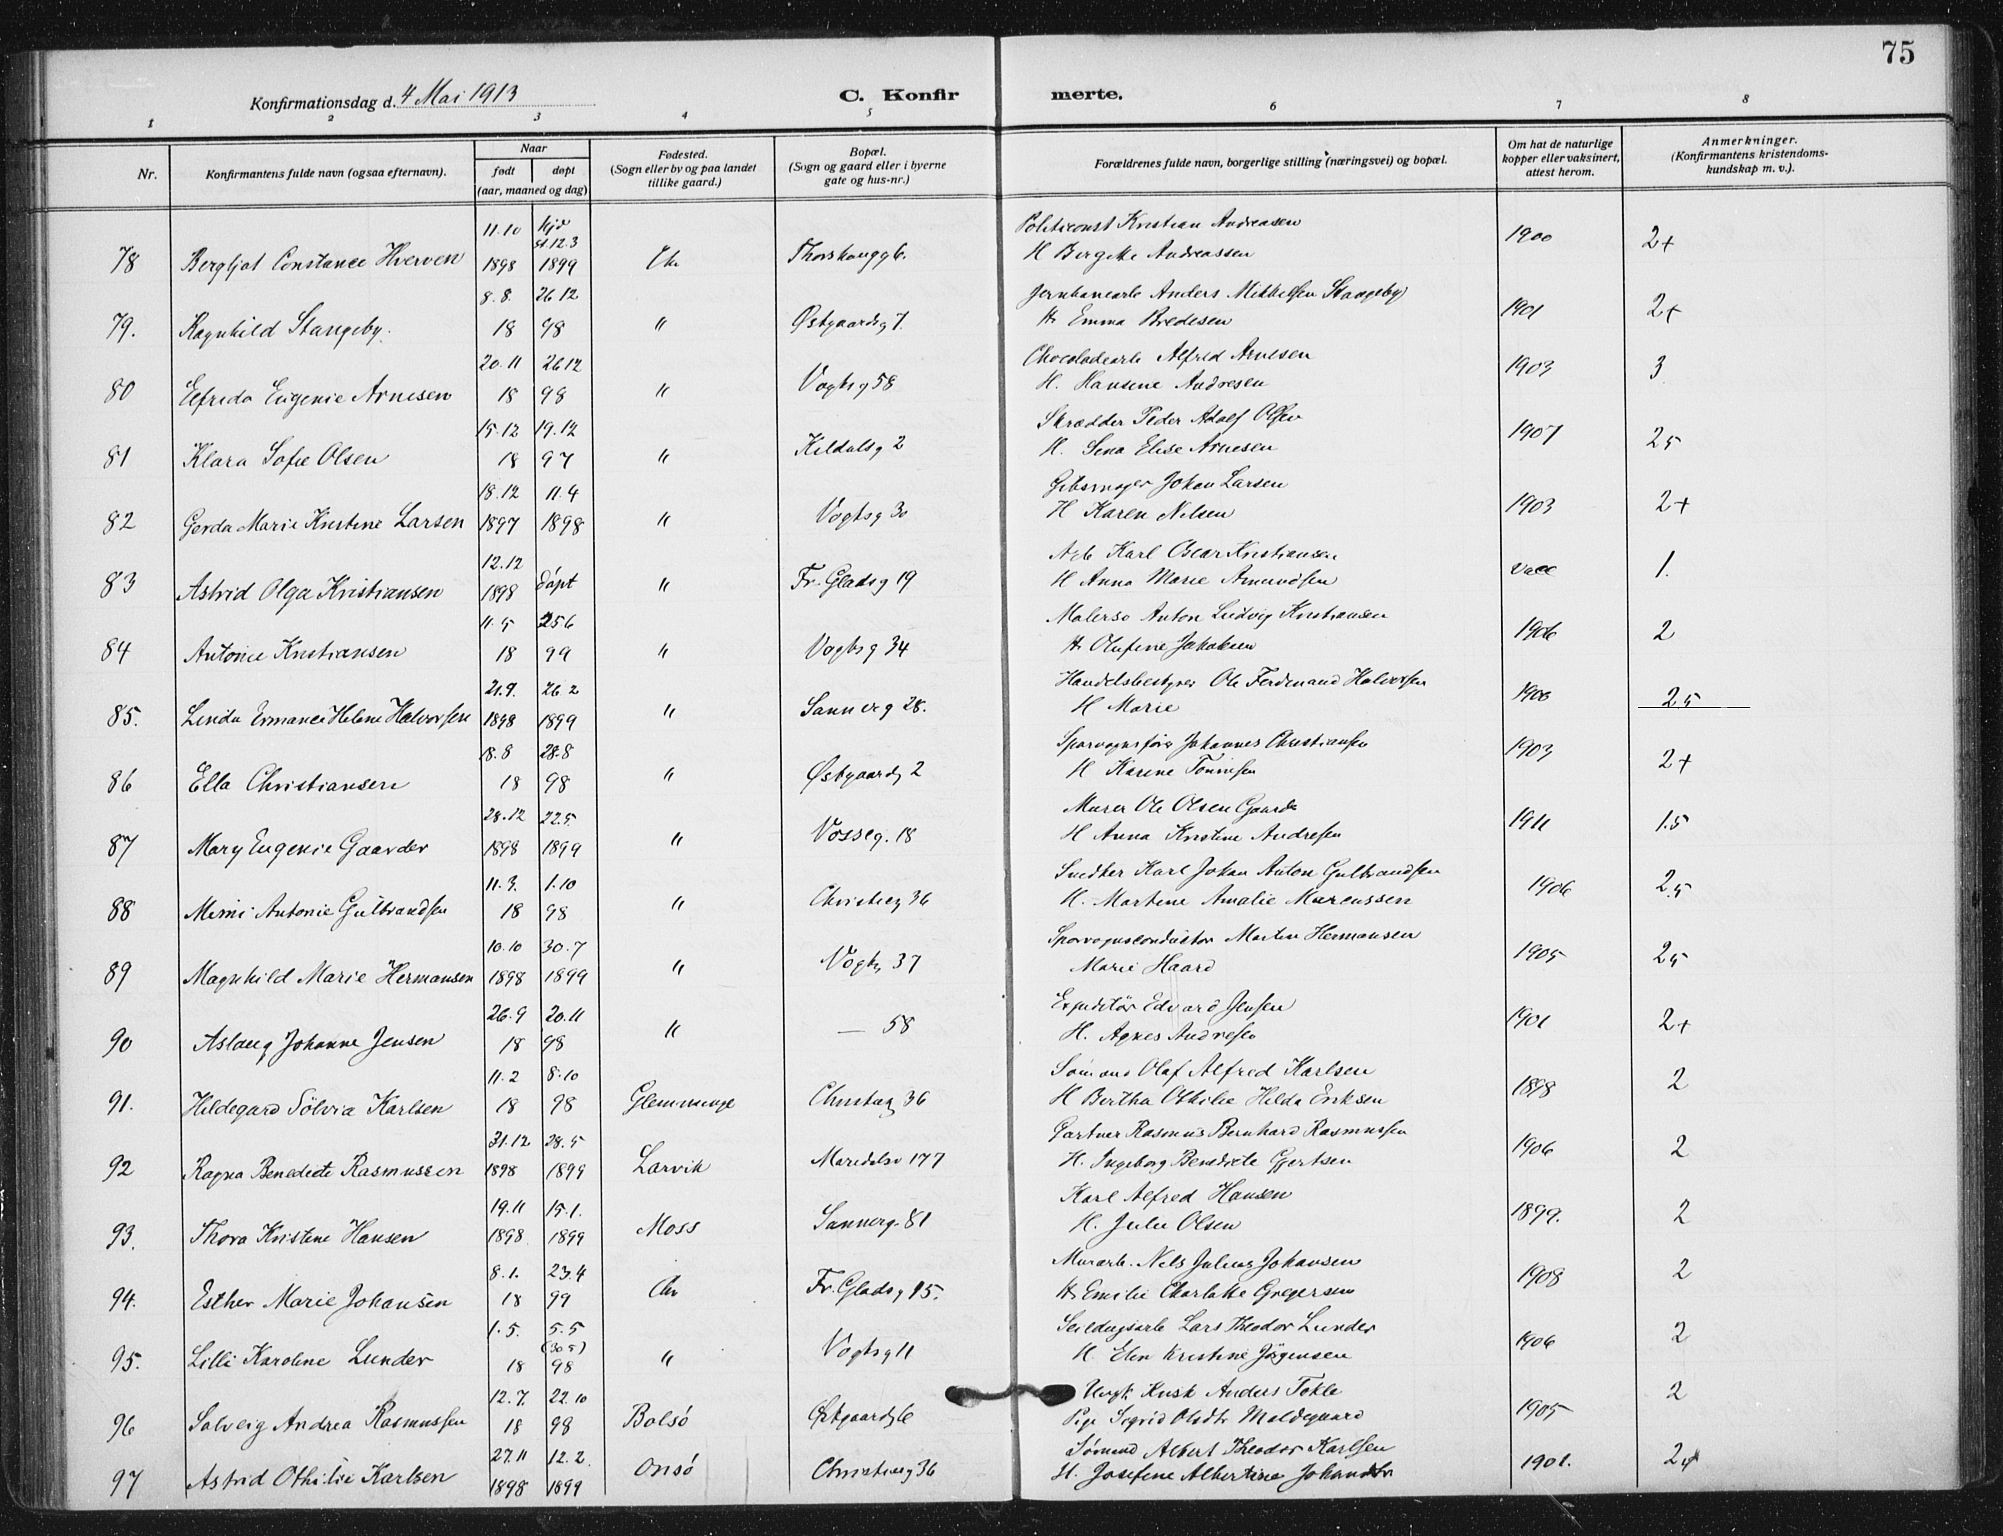 75
Konfirmationsdag d. 4 Mai 1913 C. Konfir merte.
1 2 3 4 5 6 7 8
Nr. Konfirmantens fulde navn (ogsaa efternavn). Naar født døpt (aar, maaned og dag) Fødested. (Sogn eller by og paa landet tillike gaard.) Bopæl. (Sogn og gaard eller i byerne gate og hus-nr.) Forældrenes fulde navn, borgerlige stilling (næringsvei) og bopæl. Om hat de naturlige kopper eller vaksinert, attest herom. Anmerkninger. (Konfirmantens kristendoms-kundskap m. v.).
11.10 st 12.3 Kristian Andreasen
78 Bergljot Constance Hverven 1898 1899 Chr H Bergitte Andreassen 1900 2+
8.8. 26 12 Jernbanearb Anders Mikkelsen Stangeby
79. Ragnhild Stangeby. 18 98 " Østgaardsg 7. H. Emma Bredesen 1901 2+
20.11 26 12 Chocoladearb Alfred Arnesen
80 Elfrida Eugenie Arnesen 18 98 " Vogtsg 58 H. Hansine Andresen 1903 3
15.12 19.12 Skrædder Peder Adolf Olsen
81 Klara Sofie Olsen 18 97 " Kildalsg 2 H. Lena Elise Arnesen 1907 25
18.12 11.4 Gibsmager Johan Larsen
82 Gerda Marie Kristine Larsen 1897 1898 " Vogtsg 30 H Karen Nilsen 1903 2+
12.12 Arb Karl Oscar Kristiansen
83 Astrid Olga Kristiansen 1898 døpt " Fr. Gladsg 19 H Anna Marie Amundsen vacc 1.
11.5 256 Malersv Anton Ludvig Kristiansen
84 Antonie Kristiansen 18 99 " Vogtsg 34 H. Olufine Jakobsen 1906 2
21.9. 26 2 Handelsbestyrer Ole Ferdinand Halvorsen
85. Linda Ermance Helene Halvorsen 1898 1899 " Sannerg 28. H Marie 1900 25
18.8 28.8 Sporvognsfører Johannes Christiansen
86 Ella Christiansen 18 98 " Østgaardsg 2 H Karine Tönnesen 1903 2+
28.12 22.5 Murer Ole Olsen Gaarder
87 Mary Eugenie Gaarder 1898 1899 " Vosseg. 18 H Anna Kristine Andresen 1911 1.5
11.3. 1.10 Snedker Karl Johan Anton Gulbrandsen
88 Mimi Antonie Gulbrandsen 18 98 " Christieg 36 H. Martine Amalie Marcussen 1906 2.5
10.10 30.7 Sporvognsconductor Martin Hermansen
89 Magnhild Marie Hermansen 1898 1899 " Vogtsg 37 Marie Haard 1905 25
26.9 20.11 Expeditør Edvard Jensen
90 Aslaug Johanne Jensen 18 98 " — 58 H. Agnes Andresen 1901 2+
11.2 8.10 Sømand Olaf Alfred Karlsen
91. Hildegard Sölvia Karlsen 18 98 Glemminge Christieg 36 H Bertha Othilie Hilda Eriksen 1898 2
31.12 28.5 Gartner Rasmus Bernhard Rasmussen
92 Ragna Benedicte Rasmussen 1898 1899 Larvik Maridalsv 177 H. Ingeborg Benedicte Gjertsen 1906 2
19.11 15.1. Karl Alfred Hansen
93. Thora Kristine Hansen 1898 1899 Moss Sannerg. 81 H. Julie Olsen 1899. 2
8.1. 23.4 Murarb. Nils Julius Johansen
94. Esther Marie Johansen 18 99 Chr Fr. Gladsg 15. H. Emilie Charlotte Gregersen 1908 2
1.5. 5.5 Seildugsarb Lars Theodor Lunder
95. Lilli Karoline Lunder 18 (30 5) 98 " Vogtsg 11 H. Elen Kristine Jörgensen 1906 2
12.7. 22.10 Ungk Kusk Anders Tokle
96 Solveig Andrea Rasmussen 18 98 Bolsö Østgaardsg 6 Pige Sigrid Olsdtr Moldegaard 1905 2
27.11 12.2. Sømand Albert Theodor Karlsen
97 Astrid Othilie Karlsen 1898 1899 Onsö Christieg 36 H. Josefine Albertine 1901. 2+